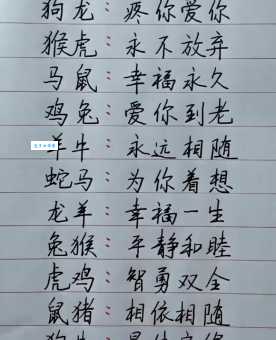 狗龙：疼你爱你
猴虎：永不放弃
马鼠：幸福永久
鸡兔：爱你到老
羊牛：永远相随
蛇马：为你着想
龙羊：幸福一生
兔猴：平静和睦
虎鸡：智勇双全
鼠猪：相依相随